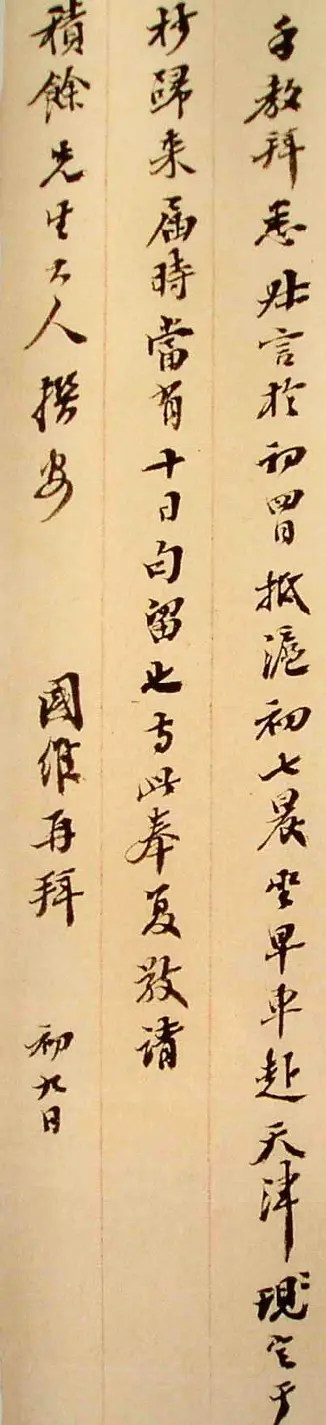 手教拜悉叔言於初四日抵滬初七晨坐早車赴天津現定于
杪歸来届時當有十日勾留也专此奉复敬請
積餘先生大人撰安 國維再拜 初九日